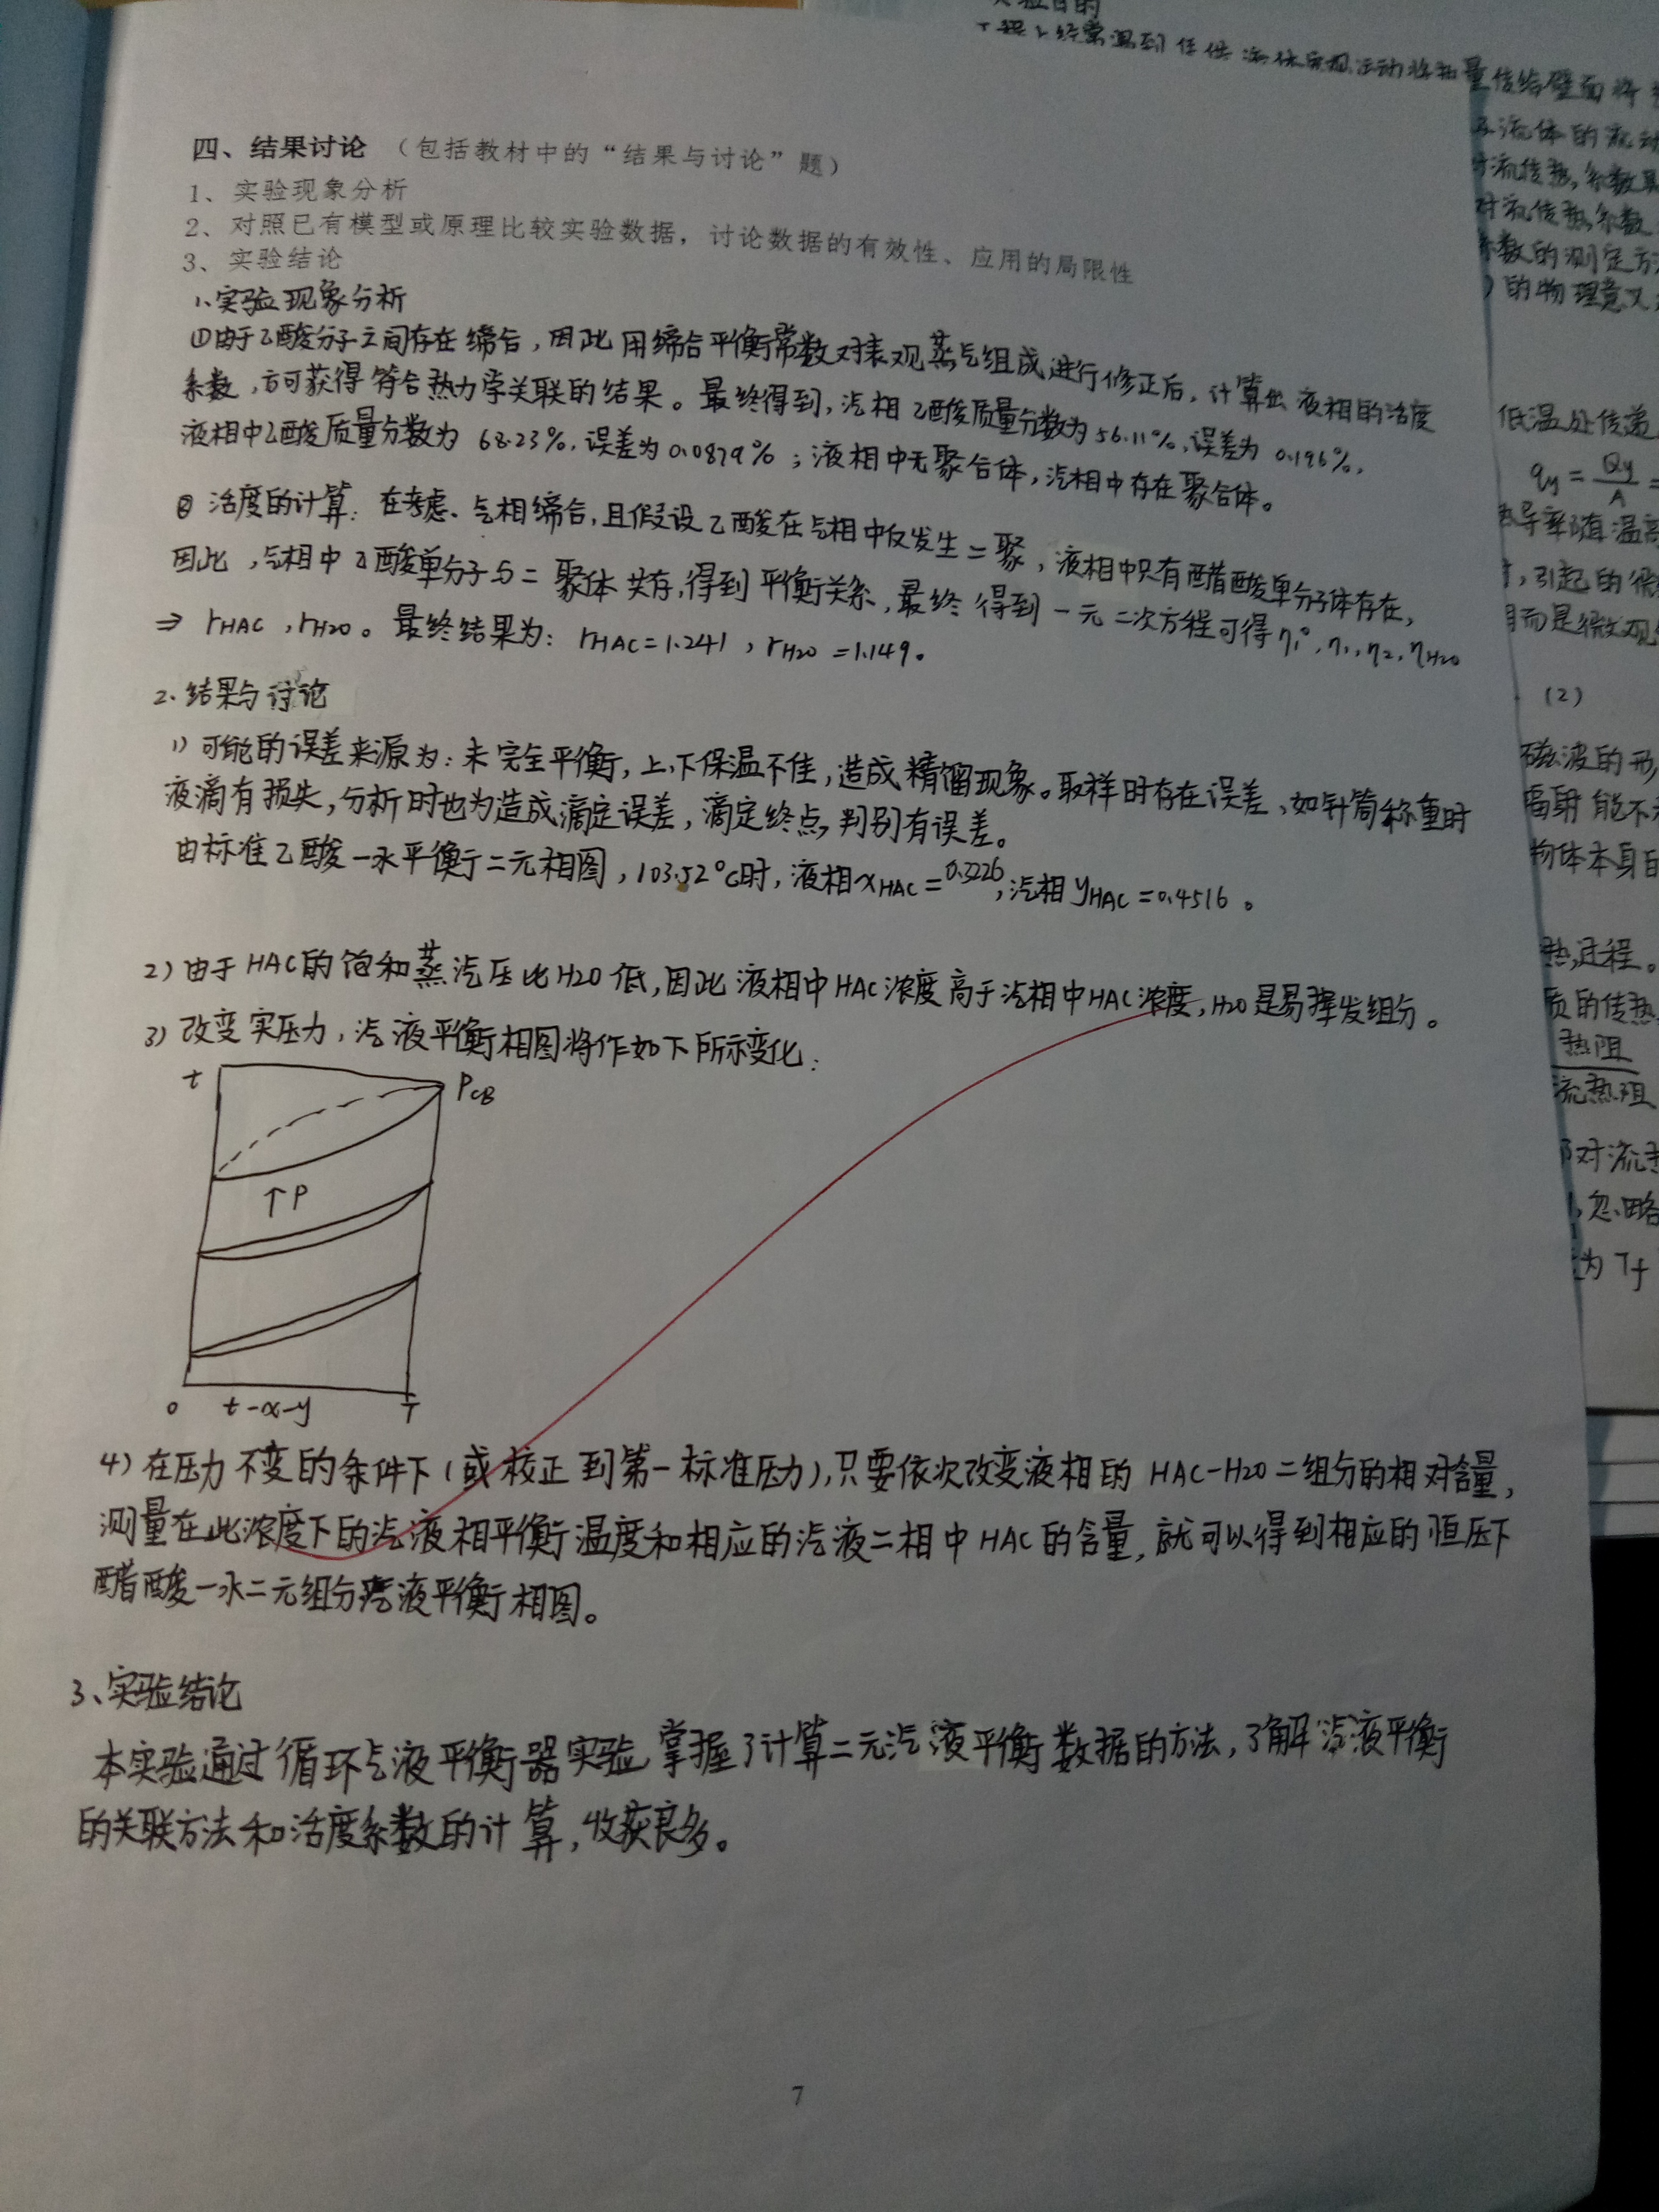 四、结果讨论 （包括教材中的“结果与讨论”题）
1、实验现象分析
2、对照已有模型或原理比较实验数据，讨论数据的有效性、应用的局限性
3、实验结论
1、实验现象分析
①由于乙酸分子之间存在缔合，因此用缔合平衡常数对表观蒸气组成进行修正后，计算出液相的活度
系数，方可获得符合热力学关联的结果。最终得到，汽相乙酸质量分数为56.11%，误差为0.196%，
液相中乙酸质量分数为68.23%，误差为0.0879%；液相中无聚合体，汽相中存在聚合体。
② 活度的计算：在考虑、气相缔合，且假设乙酸在气相中仅发生二聚，液相中只有醋酸单分子体存在，
因此，气相中乙酸单分子与二聚体共存，得到平衡关系，最终得到一元二次方程可得η₁°，η₁，η₂，ηH2O
⇒ rHAC，rH2O。最终结果为：rHAC=1.241，rH2O=1.149。
2、结果与讨论
1) 可能的误差来源为：未完全平衡，上、下保温不佳，造成精馏现象。取样时存在误差、如针筒称重时
液滴有损失，分析时也为造成滴定误差，滴定终点，判别有误差。
由标准乙酸一水平衡二元相图，103.52°C时，液相xHAC=0.3226，汽相yHAC=0.4516。
2) 由于HAC的饱和蒸汽压比H2O低，因此液相中HAC浓度高于汽相中HAC浓度，H2O是易挥发组分。
3) 改变实压力，汽液平衡相图将作如下所示变化：
t
PCB
↑P
0 t-x-y 1
4) 在压力不变的条件下（或校正到第一标准压力），只要依次改变液相的HAC-H2O二组分的相对含量，
测量在此浓度下的汽液相平衡温度和相应的汽液二相中HAC的含量，就可以得到相应的恒压下
醋酸一水二元组分汽液平衡相图。
3、实验结论
本实验通过循环气液平衡器实验掌握了计算二元汽液平衡数据的方法，了解汽液平衡
的关联方法和活度系数的计算，收获良多。
7
实验目的
量传给壁面将
流体的流动
对流传热系数
对流传热系数
系数的测定方
的物理意义
低温处传递
qy = Qy/A =
导率随温高
，引起的
而是微观
(2)
磁波的形
辐射能不
物体本身的
热过程。
质的传热
热阻
流热阻
对流
，忽略
为 Tf